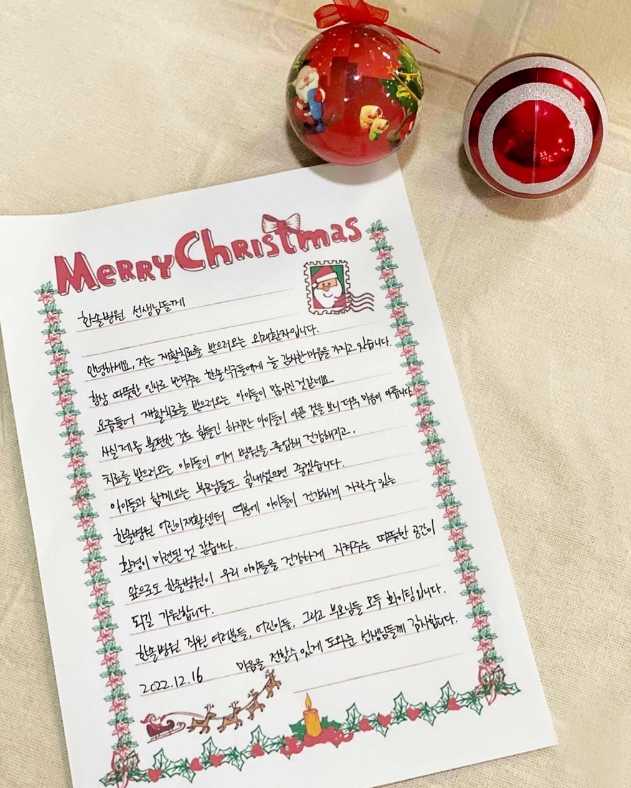 MERRY CHRISTMAS
한솔병원 선생님들께
안녕하세요, 저는 재활치료를 받으러오는 외래환자입니다.
항상 따뜻한 인사로 반겨주는 한솔식구들에게 늘 감사한마음을 가지고 있습니다.
요즘들어 재활치료를 받으러오는 아이들이 많아진것같네요
사실 제 몸 불편한 것도 힘들긴 하지만 아이들이 아픈 것을 보니 더욱 마음이 아픕니다.
치료를 받으러오는 아이들이 어서 병원을 졸업해 건강해지고,
아이들과 함께오는 부모님들도 힘내셨으면 좋겠습니다.
한솔병원 어린이재활센터 덕분에 아이들이 건강하게 자라날수있는
환경이 마련된것 같습니다.
앞으로도 한솔병원이 우리 아이들을 건강하게 지켜주는 따뜻한 공간이
되길 기원합니다.
한솔병원 직원 여러분들, 어린이들, 그리고 부모님들 모두 화이팅입니다.
2022.12.16 마음을 전할수 있게 도와준 선생님들께 감사합니다.